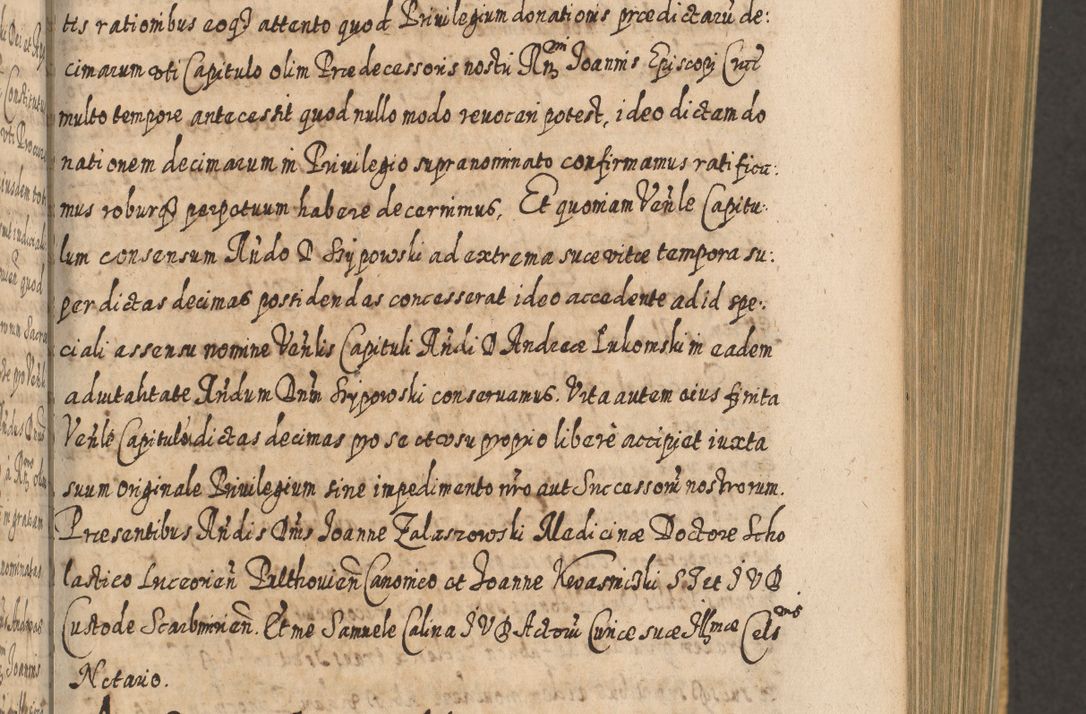 tis rationibus eoq3 attento quod Privilegium donationis prædictarū de:
cimarum uti Capitulo olim Prædecessoris nostri Joannis Episcopi
multo tempore antecessit quod nullo modo revocari potest, ideo dictam do
nationem decimarum in Privilegio supranominato confirmamus ratifica:
mus roburq3 perpetuum habere decernimus, Et quoniam Venle Capitu:
lum consensum Rndo D Srzypowski ad extrema suæ vitæ tempora su:
per dictas decimas possidendas concesserat ideo accedente ad id spe:
ciali assensu nomine Venlis Capituli Rndi D Andreæ Lukomski in eadem
aduitalitate Rndum Dnm Srzypowski conservamus. Vita autem eius finita
Venle Capitulū dictas decimas pro se et usu proprio liberè accipiet iuxta
suum originale Privilegium sine impedimento nrō aut Successorū nostrorum.
Præsentibus Rndis Dnis Joanne Zalaszowski Medicinæ Doctore Scho
lastico Luceorien Pulthovien Canonico et Joanne Kwasnicki S T et J V D
Custode Scarbimirien. Et me Samuele Calina J V D Actorū Curiæ suæ Illmæ Cels
Notario.